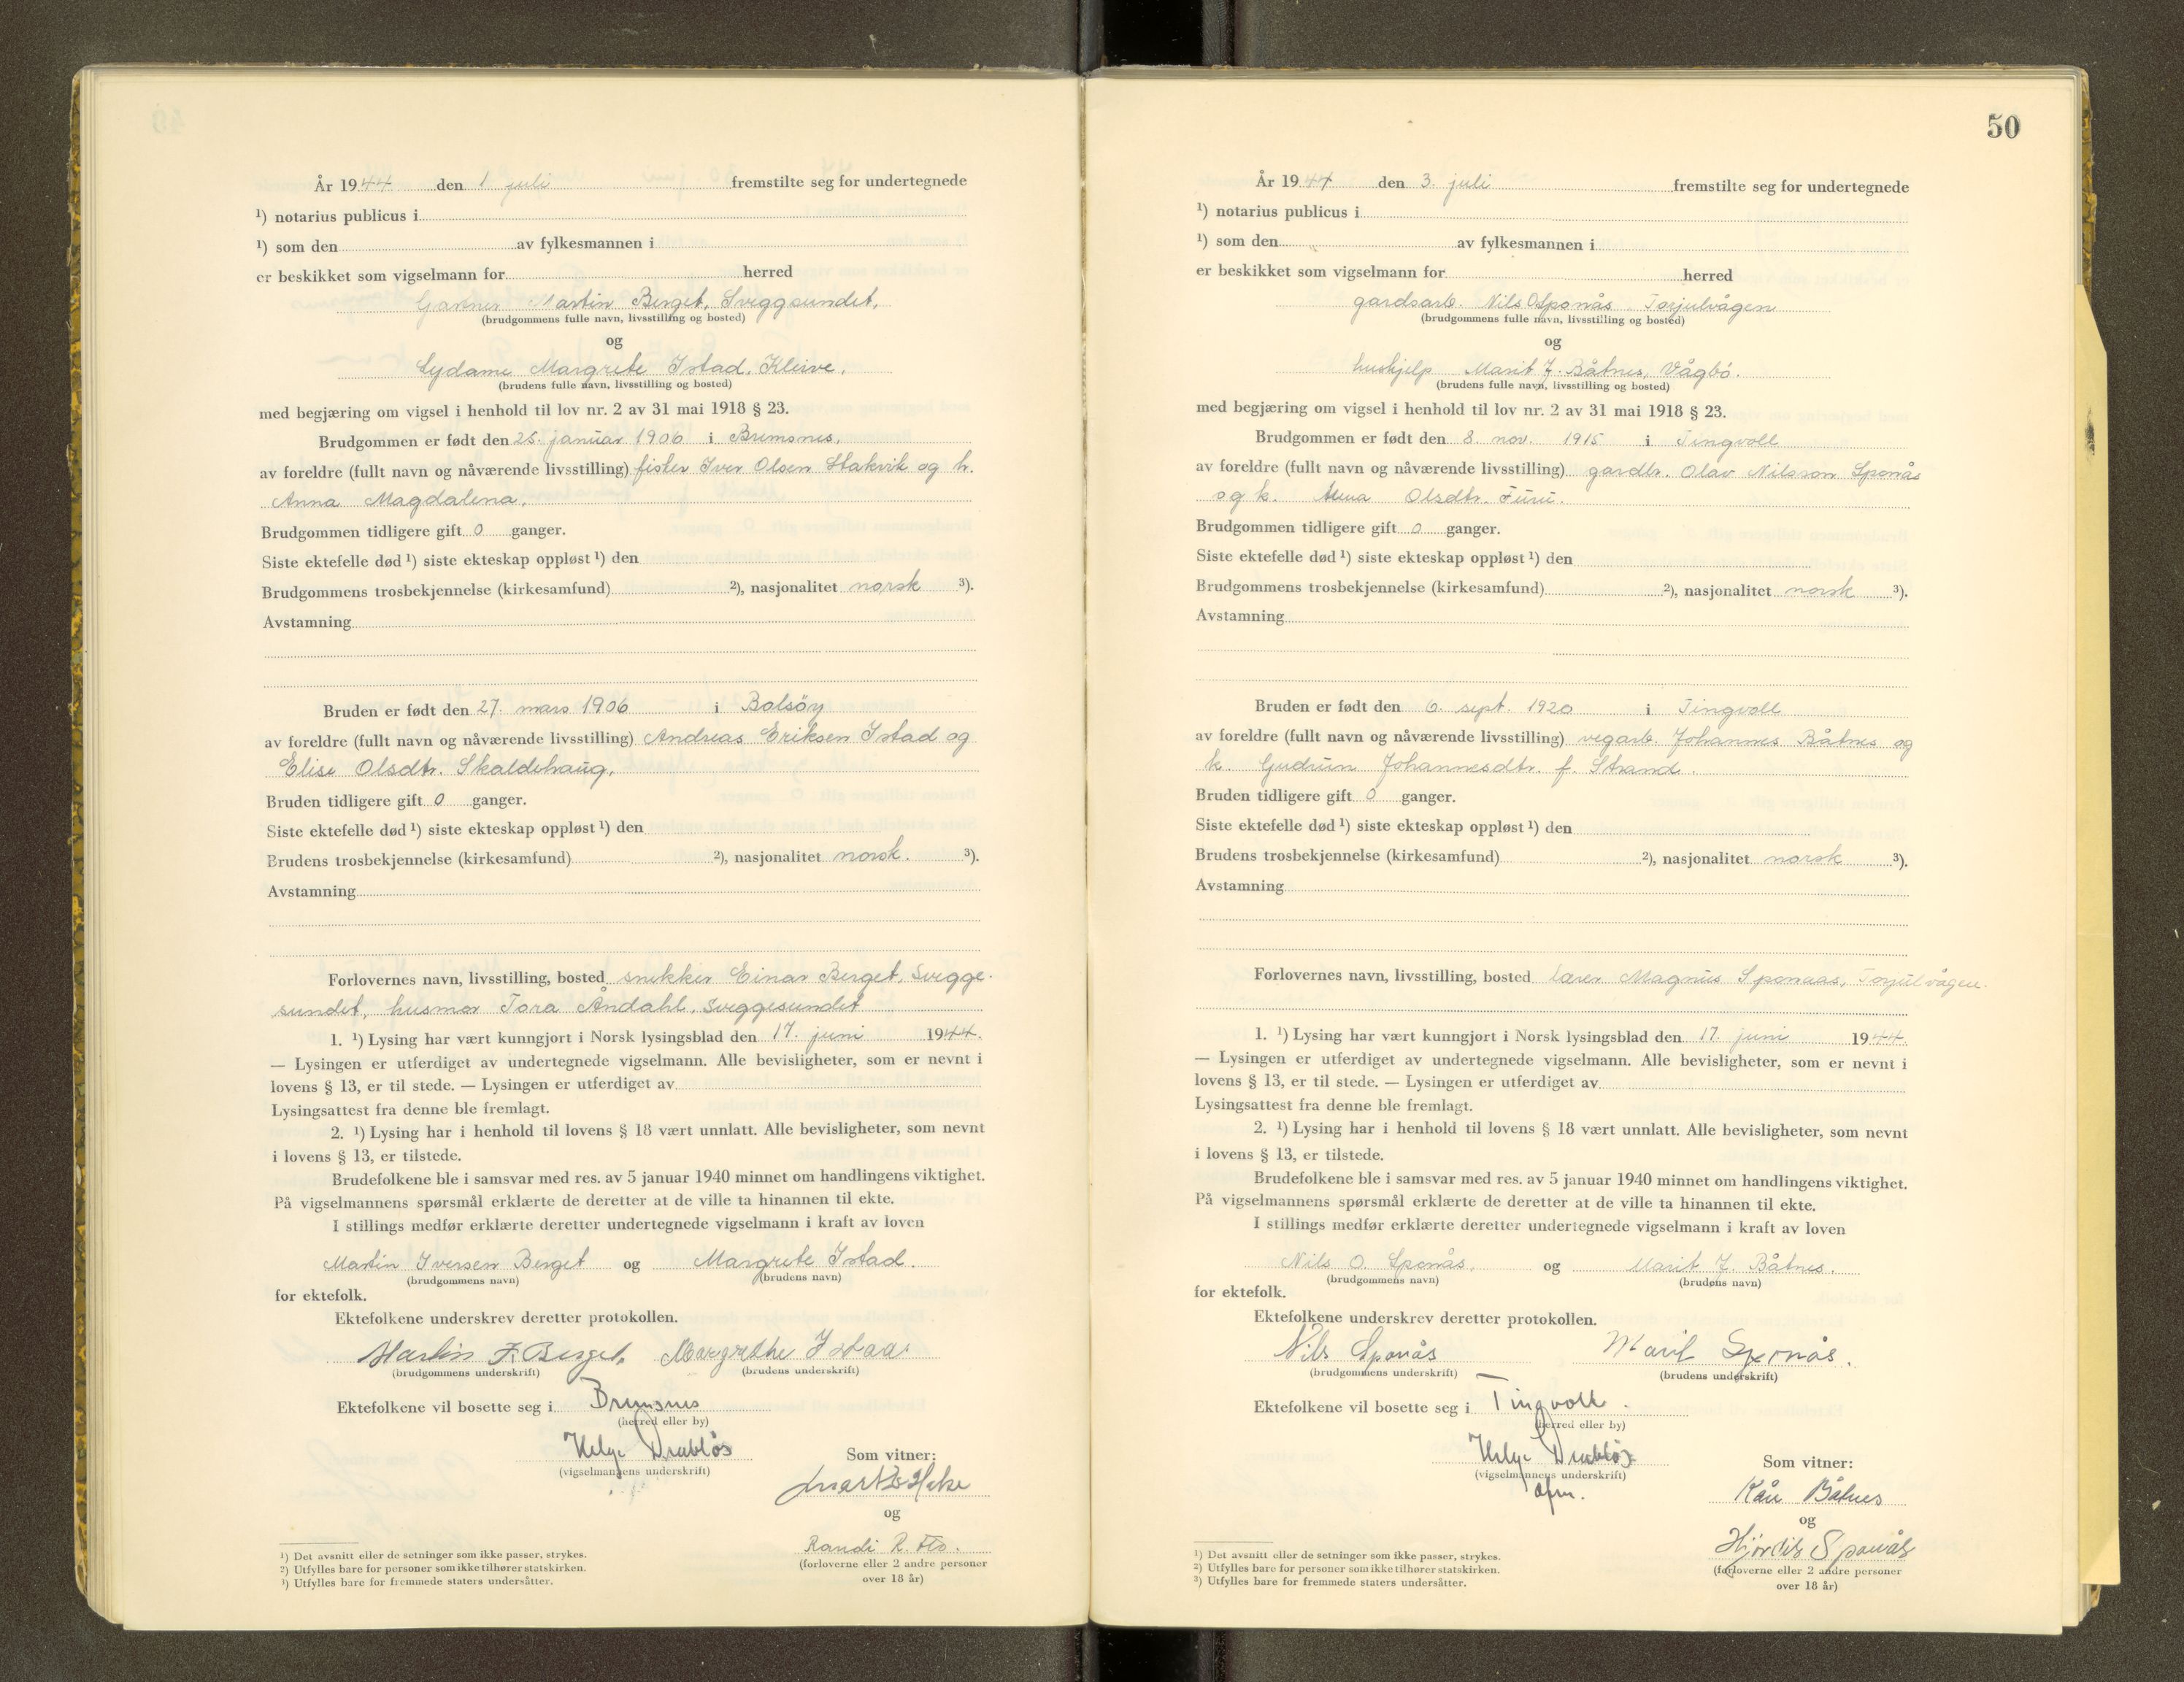 År 1944 den 1 juli fremstilte seg for undertegnede
¹) notarius publicus i
¹) som den av fylkesmannen i
er beskikket som vigselmann for herred
Martin Berget, Sveggsundet,
(brudgommens fulle navn, livsstilling og bosted)
og
Sydame Margrete Istad, Kleive,
(brudens fulle navn, livsstilling og bosted)
med begjæring om vigsel i henhold til lov nr. 2 av 31 mai 1918 § 23.
Brudgommen er født den 25. januar 1906 i Bremsnes,
av foreldre (fullt navn og nåværende livsstilling) fisker Iver Olsen Stakvik og h.
Anna Magdalena,
Brudgommen tidligere gift 0 ganger.
Siste ektefelle død ¹) siste ekteskap oppløst ¹) den
Brudgommens trosbekjennelse (kirkesamfund) ²), nasjonalitet norsk ³).
Avstamning
Bruden er født den 27. mars 1906 i Bolsöy
av foreldre (fullt navn og nåværende livsstilling) Andreas Eriksen Istad og
Elise Olsdtr. Skaldehaug,
Bruden tidligere gift 0 ganger.
Siste ektefelle død ¹) siste ekteskap oppløst ¹) den
Brudens trosbekjennelse (kirkesamfund) ²), nasjonalitet norsk. ³).
Avstamning
Forlovernes navn, livsstilling, bosted snekker Einar Berget, Svegge-
sundet, husmor Tora Åndahl, Sveggesundet
1. ¹) Lysing har vært kunngjort i Norsk lysingsblad den 17. juni 1944.
— Lysingen er utferdiget av undertegnede vigselmann. Alle bevisligheter, som er nevnt i
lovens § 13, er til stede. — Lysingen er utferdiget av
Lysingsattest fra denne ble fremlagt.
2. ¹) Lysing har i henhold til lovens § 18 vært unnlatt. Alle bevisligheter, som nevnt
i lovens § 13, er tilstede.
Brudefolkene ble i samsvar med res. av 5 januar 1940 minnet om handlingens viktighet.
På vigselmannens spørsmål erklærte de deretter at de ville ta hinannen til ekte.
I stillings medfør erklærte deretter undertegnede vigselmann i kraft av loven
Martin Iversen Berget og Margrete Istad.
(brudgommens navn) (brudens navn)
for ektefolk.
Ektefolkene underskrev deretter protokollen.
Martin I. Berget, Margrethe Istad
(brudgommens underskrift) (brudens underskrift)
Ektefolkene vil bosette seg i Bremsnes
(herred eller by)
Helge Drabløs
(vigselmannens underskrift)
Som vitner:
og
Randi R. Flo.
(forloverne eller 2 andre personer
over 18 år)
¹) Det avsnitt eller de setninger som ikke passer, strykes.
²) Utfylles bare for personer som ikke tilhører statskirken.
³) Utfylles bare for fremmede staters undersåtter.
50
År 1944 den 3. juli fremstilte seg for undertegnede
¹) notarius publicus i
¹) som den av fylkesmannen i
er beskikket som vigselmann for herred
gardsarb. Nils O Sponås Torjulvågen
(brudgommens fulle navn, livsstilling og bosted)
og
hushjelp Marit J. Båtnes, Vågbö.
(brudens fulle navn, livsstilling og bosted)
med begjæring om vigsel i henhold til lov nr. 2 av 31 mai 1918 § 23.
Brudgommen er født den 8. nov. 1915 i Tingvoll
av foreldre (fullt navn og nåværende livsstilling) gardbr. Olav Nilsson Sponås
og k. Anna Olsdtr. Furu.
Brudgommen tidligere gift 0 ganger.
Siste ektefelle død ¹) siste ekteskap oppløst ¹) den
Brudgommens trosbekjennelse (kirkesamfund) ²), nasjonalitet norsk ³).
Avstamning
Bruden er født den 6. sept. 1920 i Tingvoll
av foreldre (fullt navn og nåværende livsstilling) vegarb. Johannes Båtnes og
k. Gudrun Johannesdtr. f. Strand.
Bruden tidligere gift 0 ganger.
Siste ektefelle død ¹) siste ekteskap oppløst ¹) den
Brudens trosbekjennelse (kirkesamfund) ²), nasjonalitet norsk ³).
Avstamning
Forlovernes navn, livsstilling, bosted lærer Magnus Sponaas, Torjulvågen.
1. ¹) Lysing har vært kunngjort i Norsk lysingsblad den 17. juni 1944.
— Lysingen er utferdiget av undertegnede vigselmann. Alle bevisligheter, som er nevnt i
lovens § 13, er til stede. — Lysingen er utferdiget av
Lysingsattest fra denne ble fremlagt.
2. ¹) Lysing har i henhold til lovens § 18 vært unnlatt. Alle bevisligheter, som nevnt
i lovens § 13, er tilstede.
Brudefolkene ble i samsvar med res. av 5 januar 1940 minnet om handlingens viktighet.
På vigselmannens spørsmål erklærte de deretter at de ville ta hinannen til ekte.
I stillings medfør erklærte deretter undertegnede vigselmann i kraft av loven
Nils O. Sponås, og Marit J. Båtnes.
(brudgommens navn) (brudens navn)
for ektefolk.
Ektefolkene underskrev deretter protokollen.
Nils Sponås Marit Sponås.
(brudgommens underskrift) (brudens underskrift)
Ektefolkene vil bosette seg i Tingvoll.
(herred eller by)
Helge Drabløs
(vigselmannens underskrift)
Som vitner:
Kåre Båtnes
og
Hjördis Sponås
(forloverne eller 2 andre personer
over 18 år)
¹) Det avsnitt eller de setninger som ikke passer, strykes.
²) Utfylles bare for personer som ikke tilhører statskirken.
³) Utfylles bare for fremmede staters undersåtter.